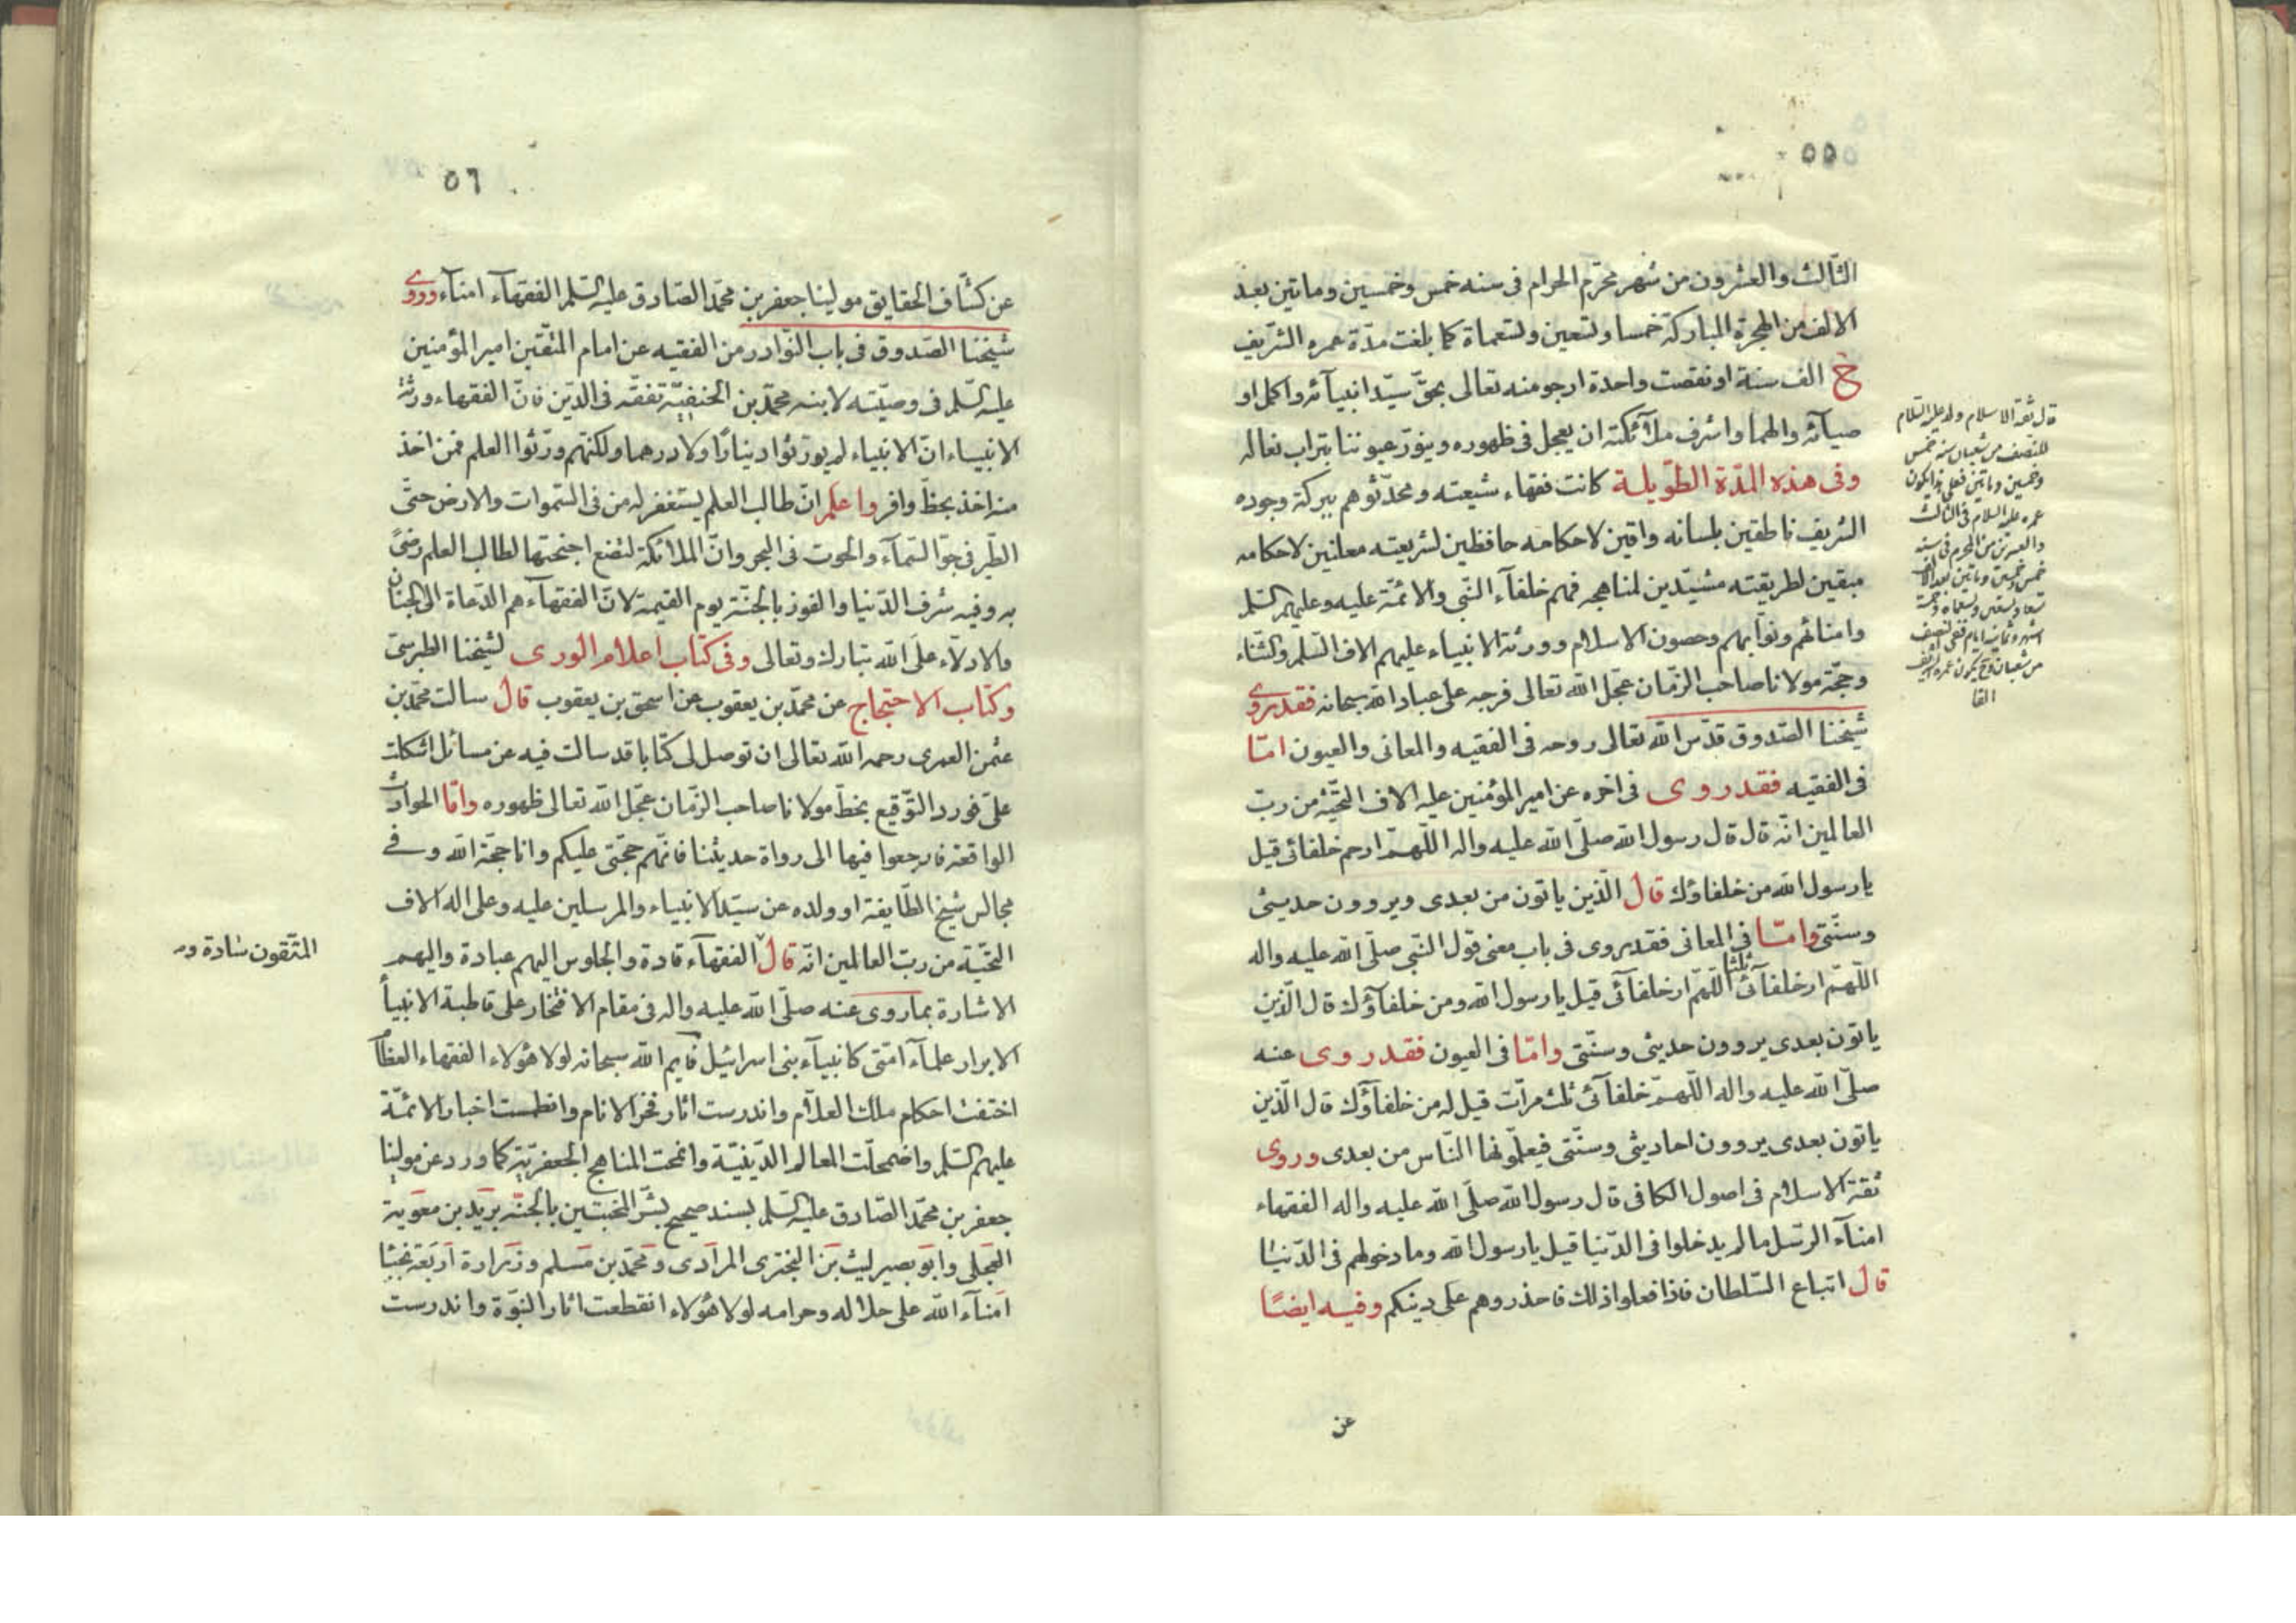 ٥٥
الثالث والعشرون من شهر محرّم الحرام فى سنه خمس وخمسين وماتين بعد
الالف من الهجرة المباركة خمسا وتسعين وتسعماة كما بلغت مدّة عمره الشريف
الف سنة او نقصت واحدة ارجو منه تعالى بحقّ سيّد انبيآئه واكمل او
صيآئه والهما واشرف ملآئكته ان يعجل فى ظهوره وينوّر عيوننا بتراب نعاله
وفى هذه المدّة الطّويلة كانت فقهاء شيعته ومحدّثوهم ببركة وجوده
الشريف ناطقين بلسانه واقين لاحكامه حافظين لشريعته معلنين لاحكامه
مبقين لطريقته مشيّدين لمناهجه فهم خلفآء النّبى والائمّة عليه وعليهم السّلم
وامنائهم ونوّابهم وحصون الاسلام وورثة الانبياء عليهم الاف السّلم والثناء
وحجّة مولانا صاحب الزّمان عجّل الله تعالى فرجه على عباد الله سبحانه فقد يروى
شيخنا الصّدوق قدّس الله تعالى روحه فى الفقيه والمعانى والعيون امّا
فى الفقيه فقد روى فى اخره عن امير المؤمنين عليه الاف التحيّة من ربّ
العالمين انّه قال قال رسول الله صلّى الله عليه واله اللّهمّ ارحم خلفائى قيل
يا رسول الله من خلفاؤك قال الّذين ياتون من بعدى ويروون حديثى
وسنّتى وامّا فى المعانى فقد يروى فى باب معنى قول النّبى صلّى الله عليه واله
اللّهمّ ارحم خلفآئى ثلثا اللّهمّ ارحم خلفآئى قيل يا رسول الله ومن خلفآؤك قال الّذين
ياتون بعدى يروون حديثى وسنّتى وامّا فى العيون فقد روى عنه
صلّى الله عليه واله اللّهمّ خلفآئى ثلث مرّات قيل له من خلفآؤك قال الّذين
ياتون بعدى يروون احاديثى وسنّتى فيعلّمونها النّاس من بعدى وروى
ثقة الاسلام فى اصول الكافى قال رسول الله صلّى الله عليه واله الفقهاء
امنآء الرّسل ما لم يدخلوا فى الدّنيا قيل يا رسول الله وما دخولهم فى الدّنيا
قال اتباع السّلطان فاذا فعلوا ذلك فاحذروهم على دينكم وفيه ايضًا
عن
قال ثقة الاسلام ولد عليه السّلام
للنّصف من شعبان سنه خمس
وخمسين وماتين فعلى هذا يكون
عمره عليه السلام فى الثالث
والعشرين من المحرم فى سنه
خمس وخمسين وماتين بعد الالف
تسعا وتسعين وتسعماه وخمسة
اشهر وثمانية ايام ففى النصف
من شعبان يكون عمره الشريف
الفا
٥٦
عن كشّاف الحقايق مولينا جعفر بن محمّد الصّادق عليه السّلم الفقهآء امنآء وروى
شيخنا الصّدوق فى باب النّوادر من الفقيه عن امام المتّقين امير المؤمنين
عليه السّلم فى وصيّته لابنه محمّد بن الحنفيّة تفقّه فى الدّين فانّ الفقهاء ورثة
الانبياء انّ الانبياء لم يورّثوا دينارًا ولا درهما ولكنّهم ورّثوا العلم فمن اخذ
منه اخذ بحظّ وافر واعلم انّ طالب العلم يستغفر له من فى السّموات والارض حتّى
الطّير فى جوّ السّمآء والحوت فى البحر وانّ الملائكة لتضع اجنحتها لطالب العلم رضىً
به وفيه شرف الدّنيا والفوز بالجنّة يوم القيمة لانّ الفقهآء هم الدّعاة الى الجنان
والادلّاء على الله تبارك وتعالى وفى كتاب اعلام الورى لشيخنا الطبرسىّ
وكتاب الاحتجاج عن محمّد بن يعقوب عن اسحق بن يعقوب قال سالت محمّد بن
عثمن العمرى رحمه الله تعالى ان توصل لى كتابا قد سالت فيه عن مسائل اشكلت
علىّ فورد التّوقيع بخطّ مولانا صاحب الزّمان عجّل الله تعالى ظهوره وامّا الحوادث
الواقعة فارجعوا فيها الى رواة حديثنا فانّهم حجّتى عليكم وانا حجّة الله وفى
مجالس شيخ الطّايفة او ولده عن سيّد الانبياء والمرسلين عليه وعلى اله الاف
التحيّة من ربّ العالمين انّه قال الفقهآء قادة والجلوس اليهم عبادة واليهم
الاشارة بما روى عنه صلّى الله عليه واله فى مقام الافتخار على قاطبة الانبيآ
الابرار علمآء امّتى كانبيآء بنى اسرائيل فايم الله سبحانه لولا هؤلاء الفقهاء العظآم
اختفت احكام ملك العلّام واندرست اثار فخر الانام وانطمست اخبار الائمّة
عليهم السّلم واضمحلّت المعالم الدّينيّة وانمحت المناهج الجعفريّة كما ورد عن مولينا
جعفر بن محمّد الصّادق عليه السّلم بسند صحيح بشّر المخبتين بالجنّة بريد بن معوية
العجلى وابو بصير ليث بن البخترى المرادى ومحمّد بن مسلم وزرارة اربعة نجبا
امنآء الله على حلاله وحرامه لولا هؤلاء انقطعت اثار النبوّة واندرست
المتّقون سادة و